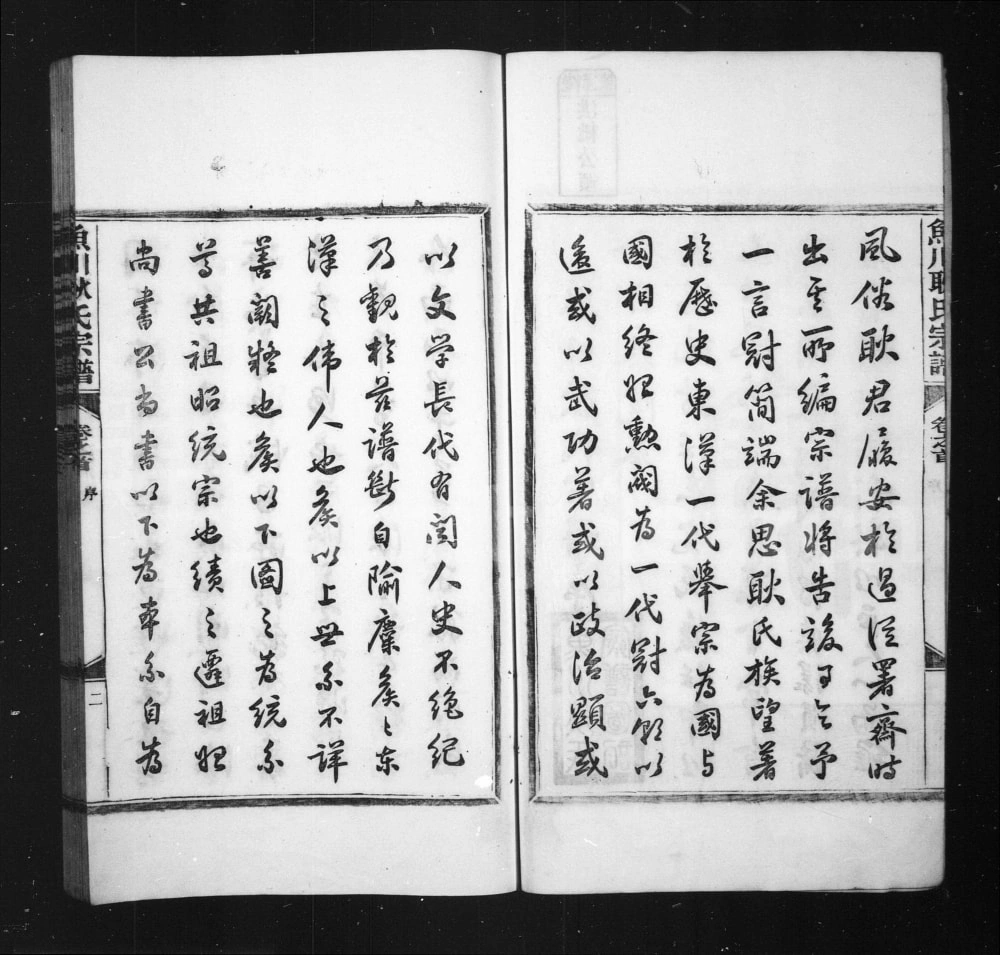 魚川耿氏宗譜
卷之首
風俗耿君履安於過從署齋時
出其所編宗譜將告竣可令予
一言尉簡端余思耿氏族望著
於歷史東漢一代舉宗為國與
國相終始勲閥為一代尉六朝以
後或以武功著或以政治顯或
以文學長代有聞人史不絕紀
乃觀於茲譜斷自隃糜矦矦東
漢之偉人也矦以上世系不詳
善闕疑也矦以下圖之為統系
尊共祖昭統宗也續之遷祖始
尚書公尚書以下為本系自為
魚川耿氏宗譜
卷之首
序
二